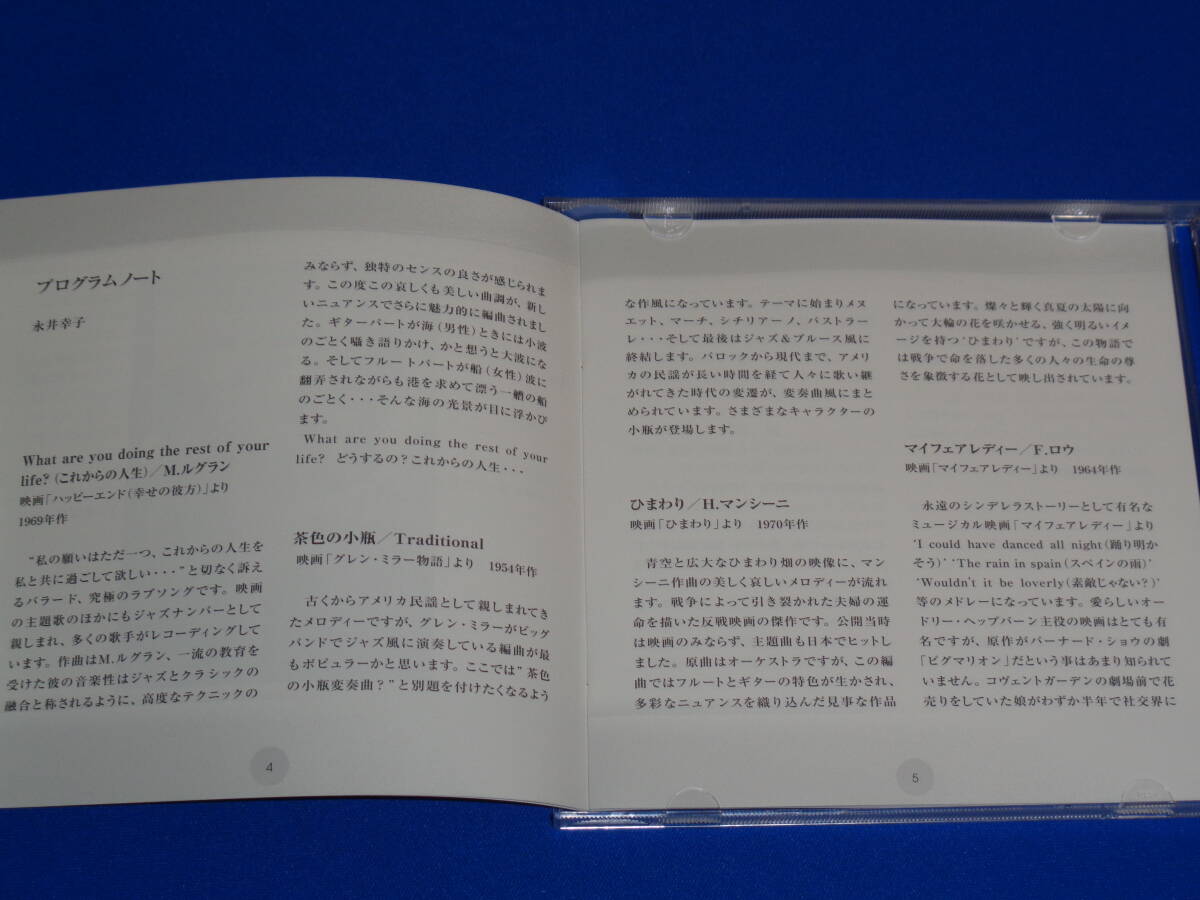 プログラムノート
永井幸子
What are you doing the rest of your
life? (これからの人生)／M.ルグラン
映画「ハッピーエンド(幸せの彼方)」より
1969年作
“私の願いはただ一つ、これからの人生を
私と共に過ごして欲しい・・・”と切なく訴え
るバラード、究極のラブソングです。映画
の主題歌のほかにもジャズナンバーとして
親しまれ、多くの歌手がレコーディングして
います。作曲はM.ルグラン、一流の教育を
受けた彼の音楽性はジャズとクラシックの
融合と称されるように、高度なテクニックの
みならず、独特のセンスの良さが感じられま
す。この度この哀しくも美しい曲調が、新し
いニュアンスでさらに魅力的に編曲されまし
た。ギターパートが海(男性)ときには小波
のごとく囁き語りかけ、かと想うと大波にな
る。そしてフルートパートが船(女性)波に
翻弄されながらも港を求めて漂う一艘の船
のごとく・・・そんな海の光景が目に浮かび
ます。
What are you doing the rest of your
life? どうするの？これからの人生・・・
茶色の小瓶／Traditional
映画「グレン・ミラー物語」より 1954年作
古くからアメリカ民謡として親しまれてき
たメロディーですが、グレン・ミラーがビッグ
バンドでジャズ風に演奏している編曲が最
もポピュラーかと思います。ここでは”茶色
の小瓶変奏曲？”と別題を付けたくなるよう
4
な作風になっています。テーマに始まりメヌ
エット、マーチ、シチリアーノ、パストラー
レ・・・そして最後はジャズ＆ブルース風に
終結します。バロックから現代まで、アメリ
カの民謡が長い時間を経て人々に歌い継
がれてきた時代の変遷が、変奏曲風にまと
められています。さまざまなキャラクターの
小瓶が登場します。
ひまわり／H.マンシーニ
映画「ひまわり」より 1970年作
青空と広大なひまわり畑の映像に、マン
シーニ作曲の美しく哀しいメロディーが流れ
ます。戦争によって引き裂かれた夫婦の運
命を描いた反戦映画の傑作です。公開当時
は映画のみならず、主題曲も日本でヒットし
ました。原曲はオーケストラですが、この編
曲ではフルートとギターの特色が生かされ、
多彩なニュアンスを織り込んだ見事な作品
になっています。燦々と輝く真夏の太陽に向
かって大輪の花を咲かせる、強く明るいイメ
ージを持つ‘ひまわり’ですが、この物語で
は戦争で命を落した多くの人々の生命の尊
さを象徴する花として映し出されています。
マイフェアレディー／F.ロウ
映画「マイフェアレディー」より 1964年作
永遠のシンデレラストーリーとして有名な
ミュージカル映画「マイフェアレディー」より
‘I could have danced all night(踊り明か
そう)’ ‘The rain in spain(スペインの雨)’
‘Wouldn't it be loverly(素敵じゃない？)’
等のメドレーになっています。愛らしいオー
ドリー・ヘップバーン主役の映画はとても有
名ですが、原作がバーナード・ショウの劇
「ピグマリオン」だという事はあまり知られて
いません。コヴェントガーデンの劇場前で花
売りをしていた娘がわずか半年で社交界に
5